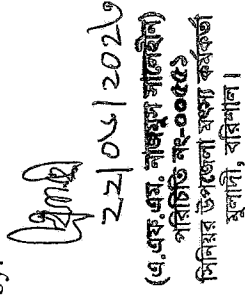 ২২/০৬/২০২৬
(এ.এফ.এম. নাজমুস সালেহীন)
পরিচিতি নং-০০৫৫১
সিনিয়র উপজেলা মৎস্য কর্মকর্তা
মুলাদী, বরিশাল।